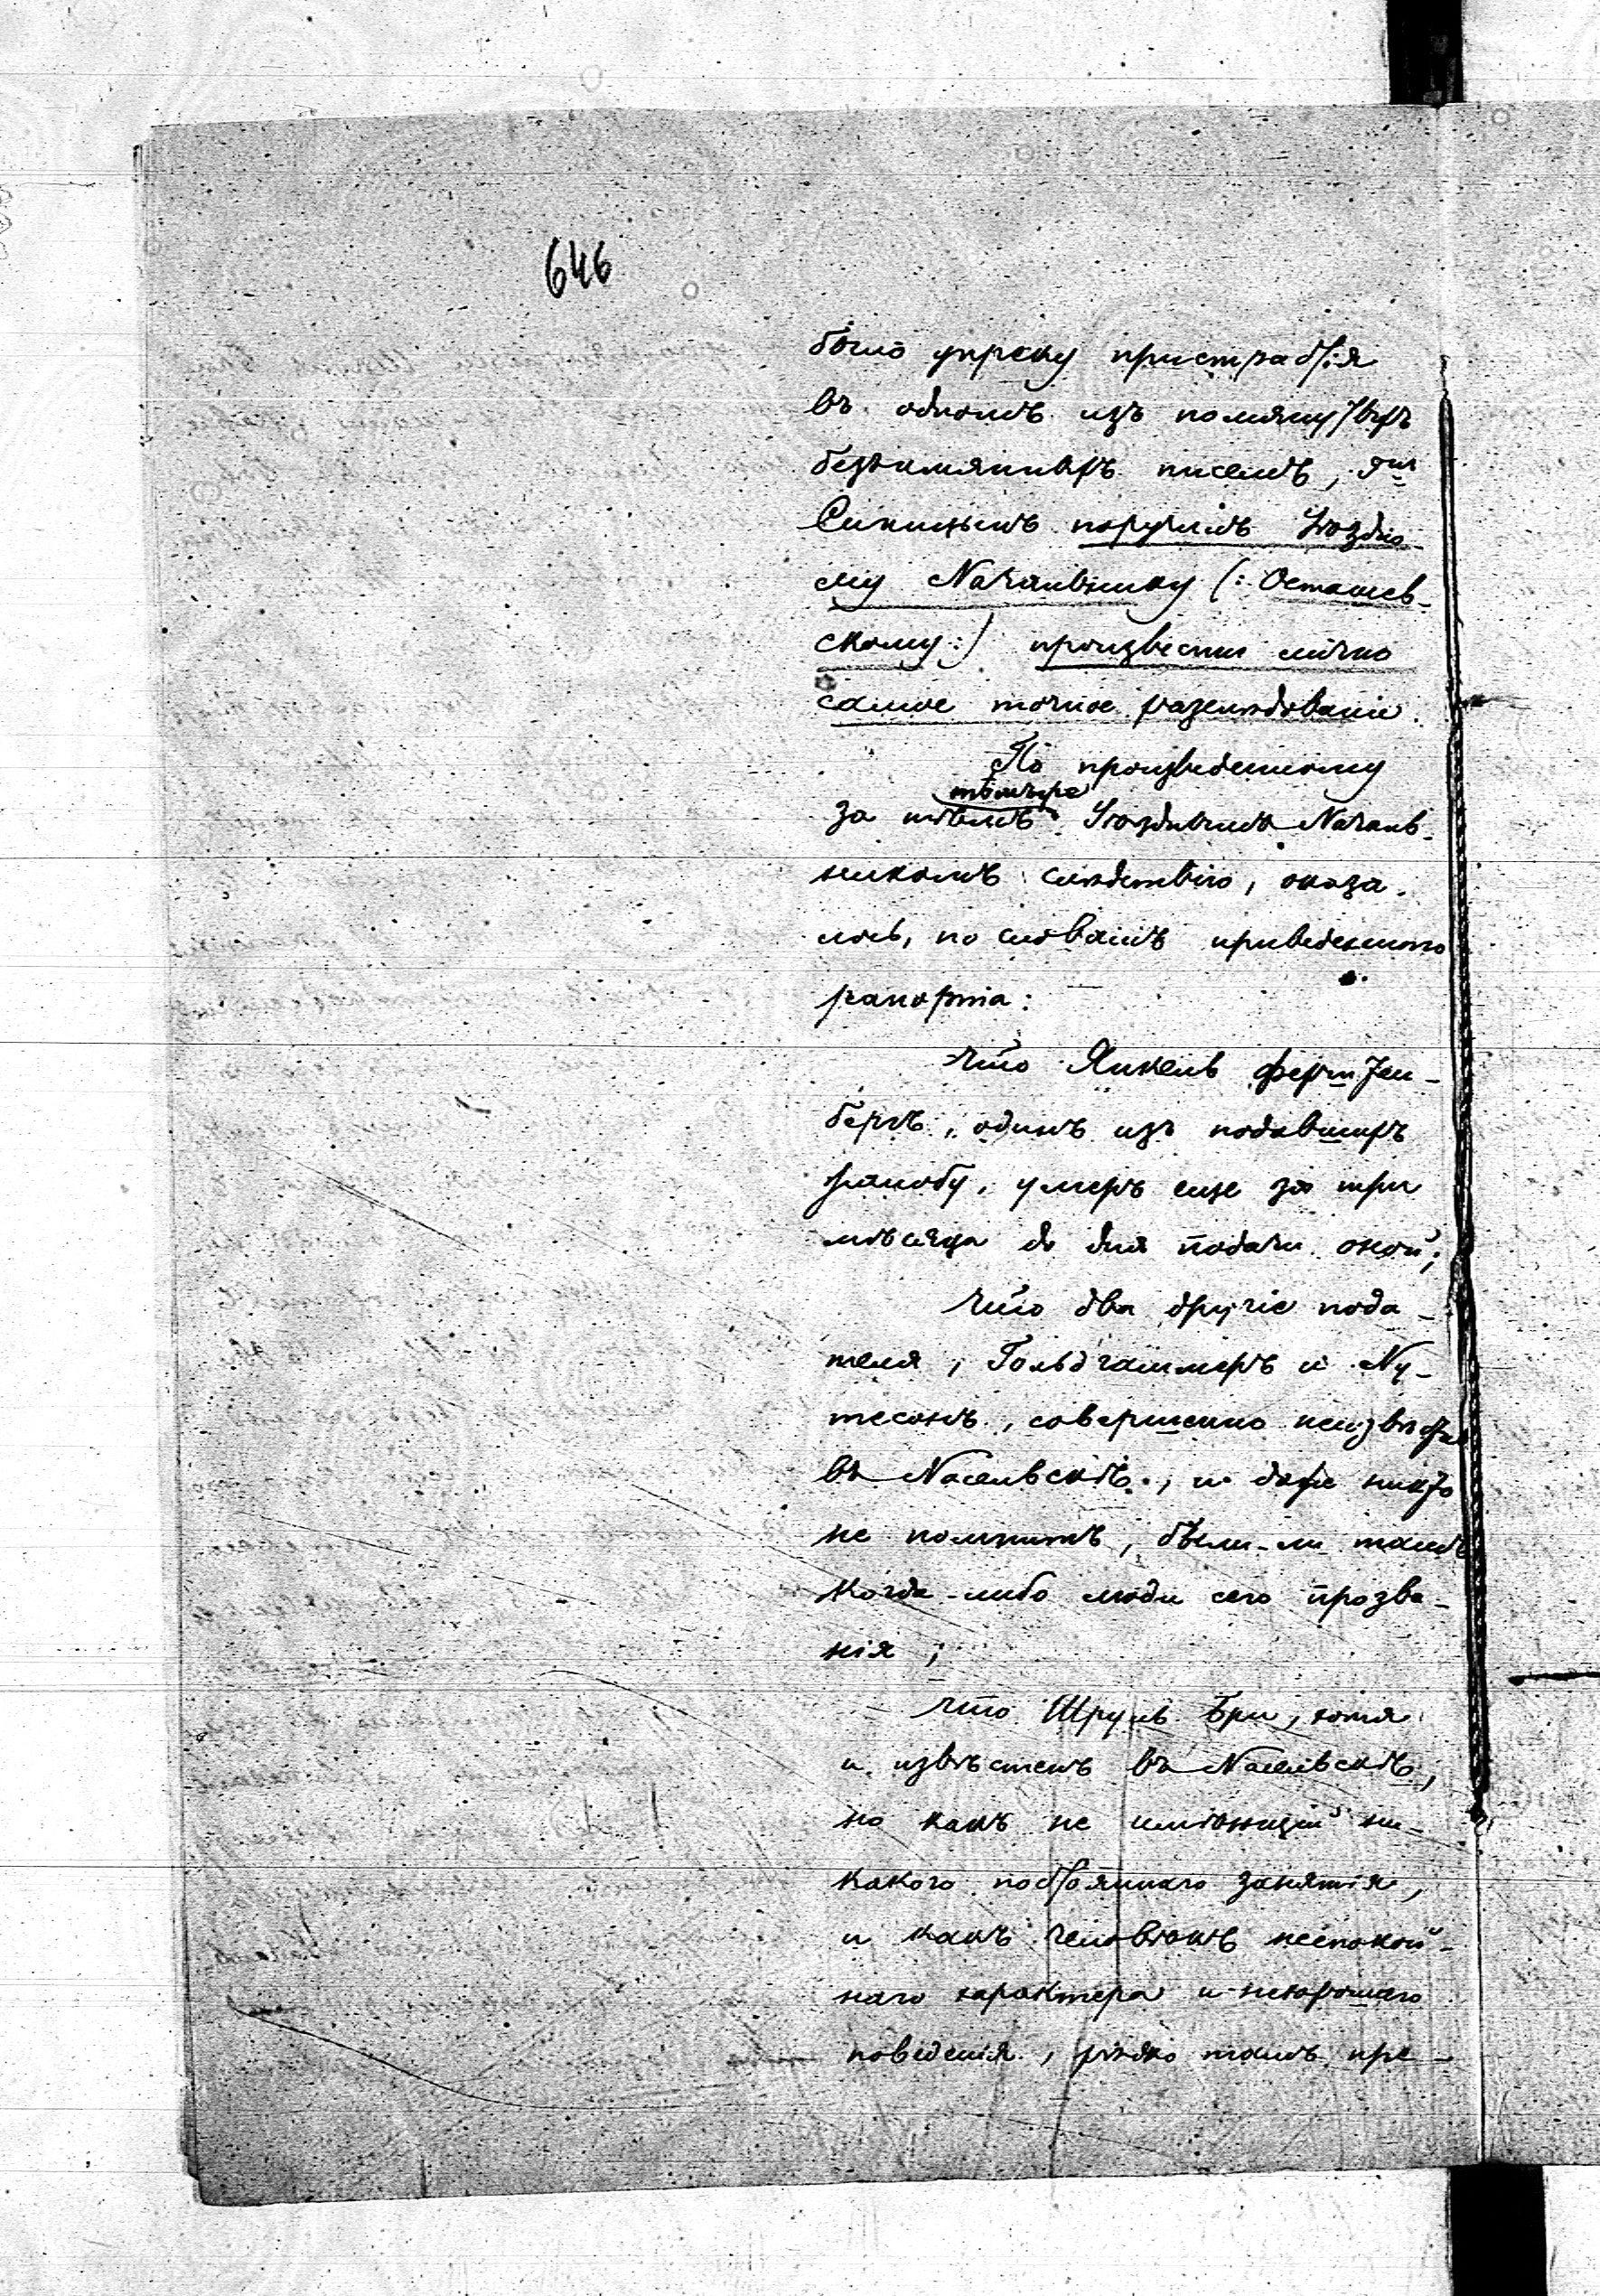 646
было упреку пристрастія
въ одномъ изъ помянутыхъ
безъимянныхъ писемъ, Гнъ
поручилъ Уѣздно-
му Начальнику (: Осташев-
скому :) произвести лично
самое точное разслѣдованіе.
По произведенному
за тѣмъ Уѣзднымъ Началь-
никомъ слѣдствію, оказа-
лось, по словамъ приведеннаго
рапорта:
что Янкель Фертзен-
бергъ, одинъ изъ подавшихъ
жалобу, умеръ еще за три
мѣсяца до дня подачи оной;
что два другіе пода-
теля, Гольдгаммеръ и Ну-
тесонъ, совершенно неизвѣстны
въ Насельскѣ, и даже никто
не помнитъ, были-ли тамъ
когда-либо люди сего прозва-
нія;
что Шруль Бри, хотя
и извѣстенъ въ Насельскѣ,
но какъ не имѣющій ни-
какого постояннаго занятія,
и какъ человѣкъ неспокой-
наго характера и нехорошаго
поведенія, рѣдко тамъ пре-